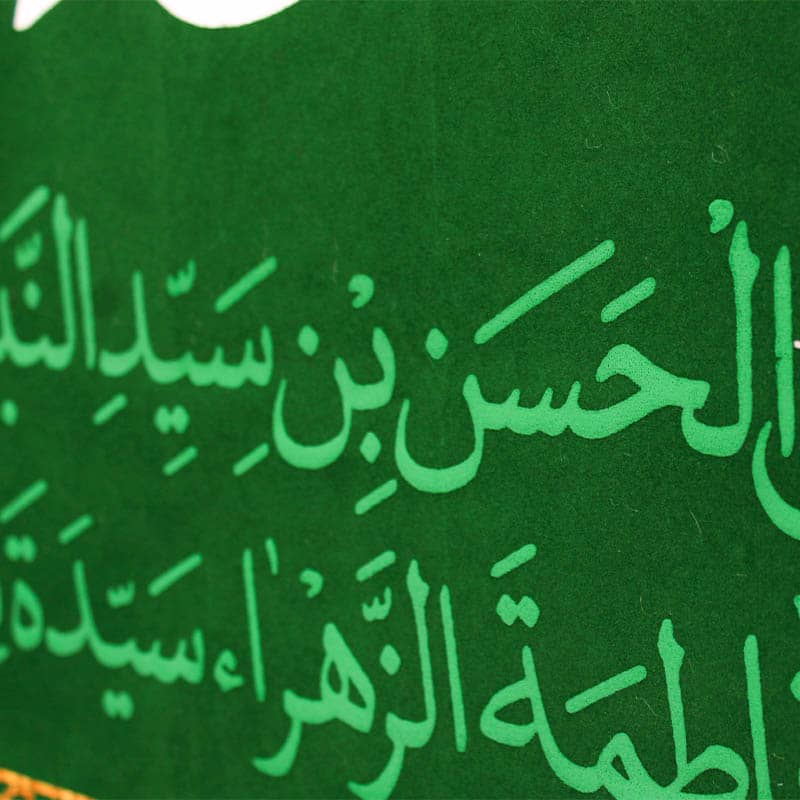 الْحَسَنِ بْنِ سَيِّدِ
فاطِمَةَ الزَّهْرٰاء سَيّدَةِ